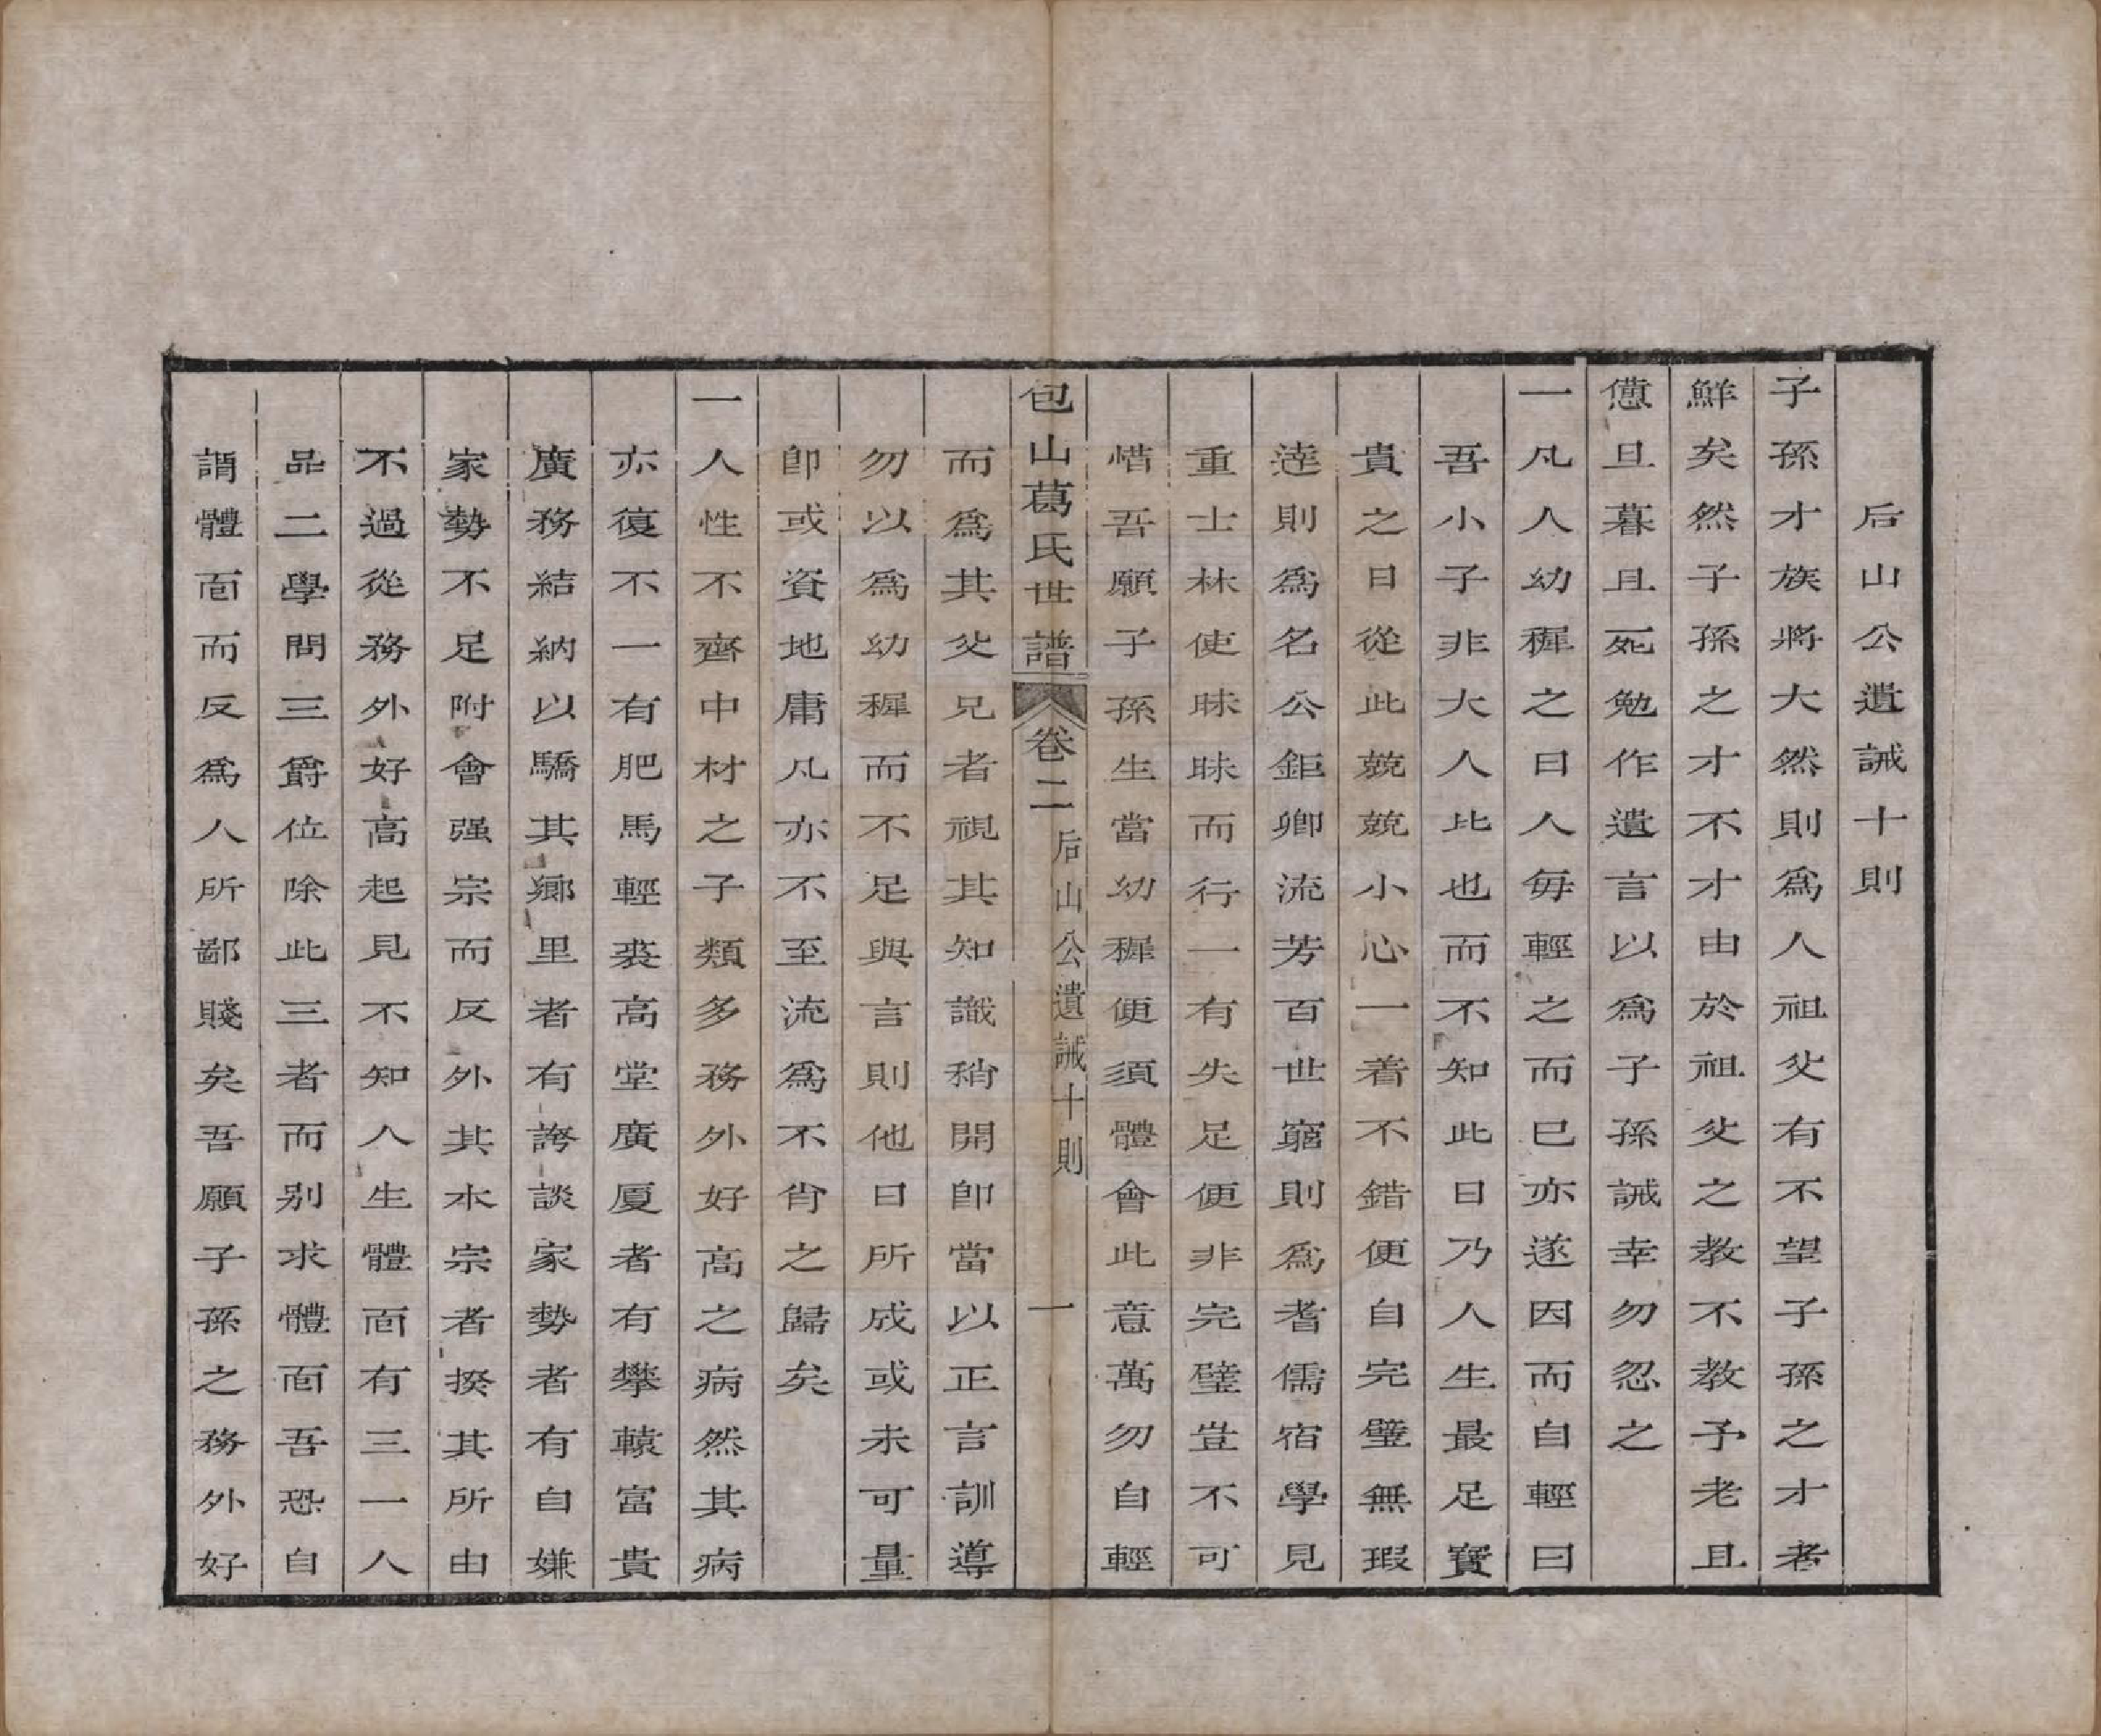 后山公遺誡十則
子孫才族將大然則爲人祖父有不望子孫之才者
鮮矣然子孫之才不才由於祖父之教不教予老且
憊旦暮且死勉作遺言以爲子孫誡幸勿忽之
一凡人幼穉之日人每輕之而已亦遂因而自輕曰
吾小子非大人比也而不知此日乃人生最足寶
貴之日從此兢兢小心一着不錯便自完璧無瑕
達則爲名公鉅卿流芳百世窮則爲耆儒宿學見
重士林使昧昧而行一有失足便非完璧豈不可
惜吾願子孫生當幼穉便須體會此意萬勿自輕
包山葛氏世譜 卷二 后山公遺誡十則 一
而爲其父兄者視其知識稍開卽當以正言訓導
勿以爲幼穉而不足與言則他日所成或未可量
卽或資地庸凡亦不至流爲不肖之歸矣
一人性不齊中材之子類多務外好高之病然其病
亦復不一有肥馬輕裘高堂廣厦者有攀轅富貴
廣務結納以驕其鄉里者有誇談家勢者有自嫌
家勢不足附會强宗而反外其本宗者揆其所由
不過從務外好高起見不知人生體面有三一人
品二學問三爵位除此三者而别求體面吾恐自
謂體面而反爲人所鄙賤矣吾願子孫之務外好